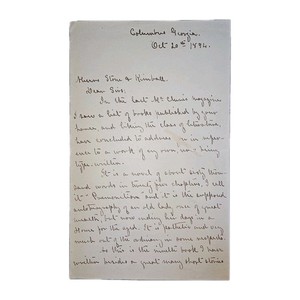 Columbus Georgia.
Oct 20th 1894.
Messrs Stone & Kimball.
Dear Sirs.
In the last McClure's magazine
I saw a list of books published by your
house and liking the class of literature
have concluded to address you in refer-
ence to a work of my own now being
type-written.
It is a novel of about sixty thou-
sand words in twenty five chapters. I call
it and it is the supposed
autobiography of an old lady once of great
wealth, but now ending her days in a
Home for the aged. It is pathetic and very
much out of the ordinary in some respects.
As this is the book I have
written besides a great many short stories